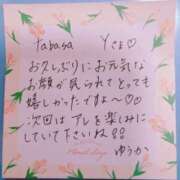 tabasa
お久しぶりにお元気な
お顔が見られてとっても
嬉しかったですよ〜
次回はアレを楽しみに
していて下さいね!!
ゆうか